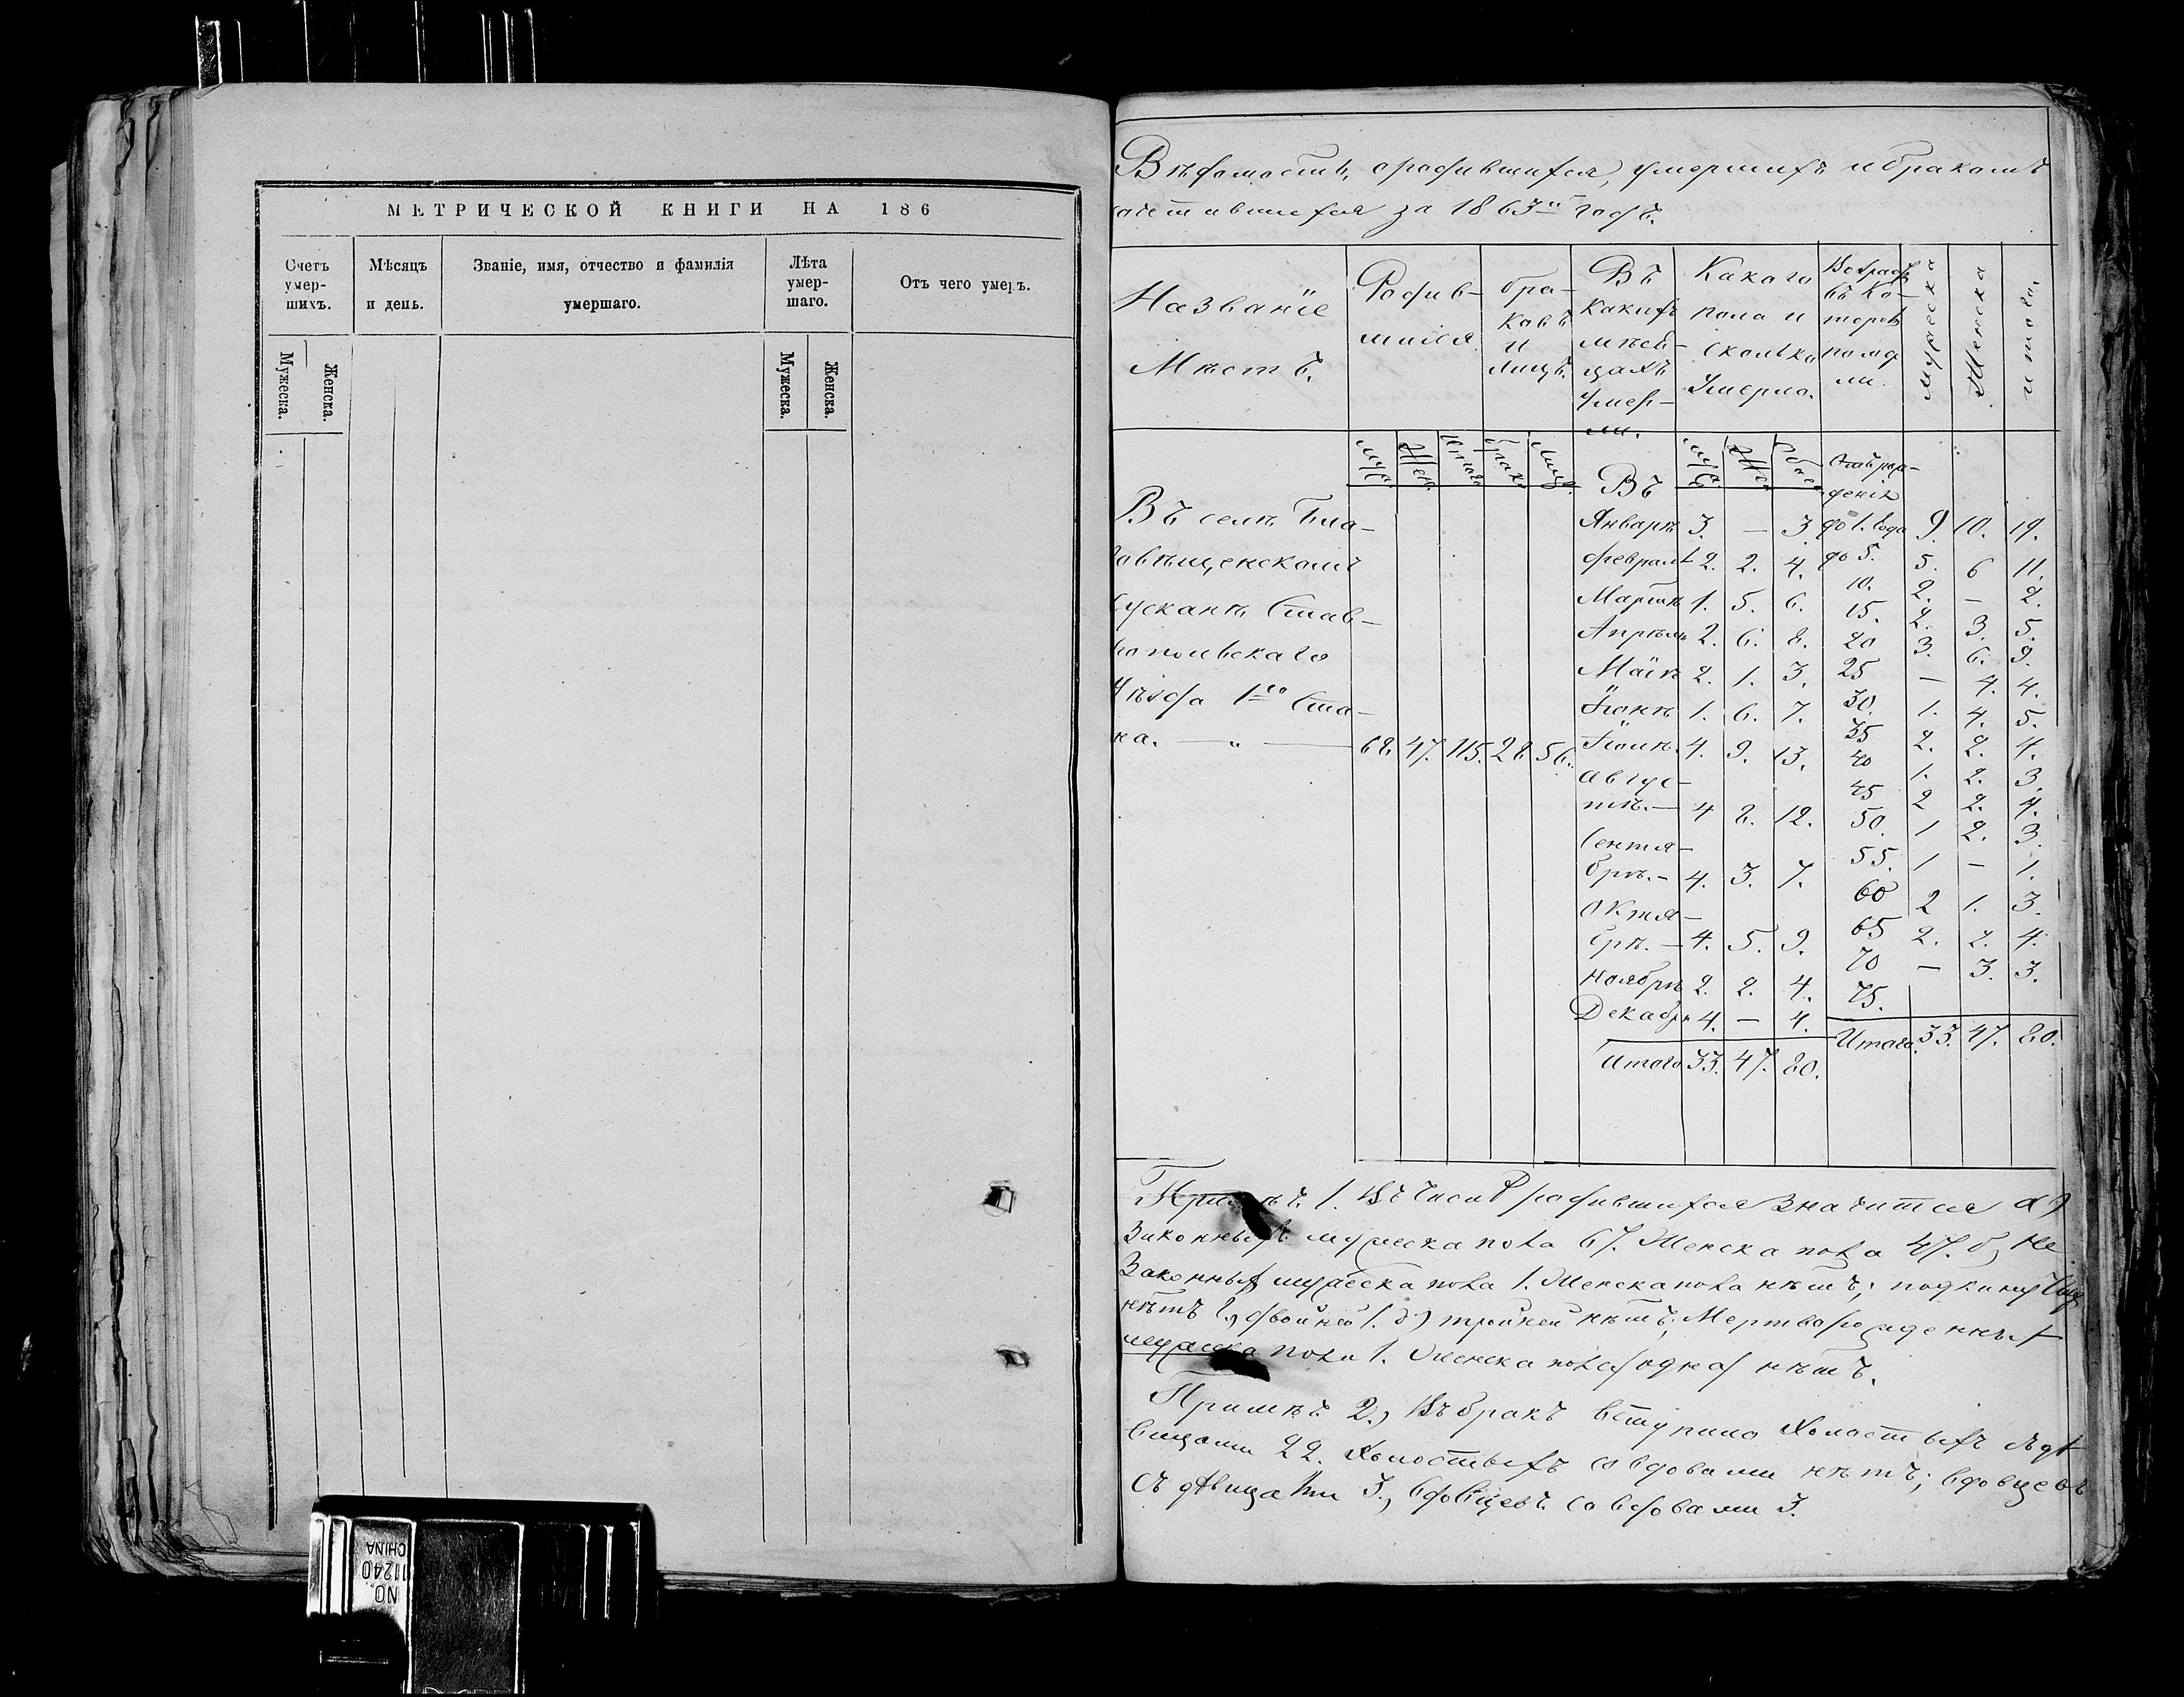 МЕТРИЧЕСКОЙ КНИГИ НА 186
Счетъ умер- шихъ.
Мѣсяцъ и день.
Званіе, имя, отчество и фамилія умершаго.
Лѣта умер- шаго.
Отъ чего умеръ.
Мужеска. Женска. Мужеска. Женска.
Вѣдомость, о родившихся, умершихъ и бракомъ
сочетавшихся за 1863й годъ.
Названіе Мѣстъ.
Родив- шихся
бра- ковъ и лицъ.
Въ какихъ мѣся- цахъ умер- ли.
Какого пола и сколько умерло.
мужеска
Женска
итого.
Въ
Отъ рож- денія
Въ селѣ Бла-
говѣщенскомъ
Сусканѣ Став-
ропольскаго
Уѣзда 1го Ста-
на. — „ — 68. 47. 115. 28 56.
Январѣ 3. — 3.
Февралѣ 2. 2. 4.
Мартѣ 1. 5. 6.
Апрѣлѣ 2. 6. 8.
Маіѣ 2. 1. 3.
Іюнѣ 1. 6. 7.
Іюлѣ. 4. 9. 13.
Авгус-
тѣ. — 4 8. 12.
Сентя-
брѣ. — 4. 3. 7.
Октя-
брѣ. — 4. 5. 9.
Ноябрѣ 2. 2. 4.
Декабрѣ 4. — 4.
Итого 33. 47. 80.
до 1. года 9. 10. 19.
до 5. 5. 6 11.
10. 2. — 2.
15. 2. 3. 5.
20 3. 6. 9.
25 — 4. 4.
30. 1. 4. 5.
35 2. 2. 4.
40 1. 2. 3.
45 2 2. 4.
50. 1 2. 3.
55. 1 — 1.
60 2 1. 3.
65 2. 2. 4.
70 — 3. 3.
75.
Итого. 33. 47. 80.
1. Въ числѣ родившихся значится а)
Законныхъ мужеска пола 67. Женска пола 47. б) Не
Законныхъ мужеска пола 1. Женска пола нѣтъ;
нѣтъ двойней 1. тройней нѣтъ; Мертворожденныхъ
мужеска пола 1. Женска пола нѣтъ.
Примѣч. 2., Въ бракъ вступило Холостыхъ съ дѣ
вицами 22. Холостыхъ со вдовами нѣтъ; вдовцевъ
съ дѣвицами 3., вдовцевъ со вдовами 3.
NO 11240
CHINA